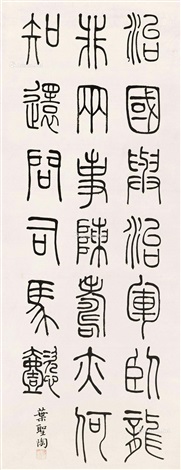 治國與治軍臥龍
未兩事陳壽亦何
知還問司馬懿
葉聖陶